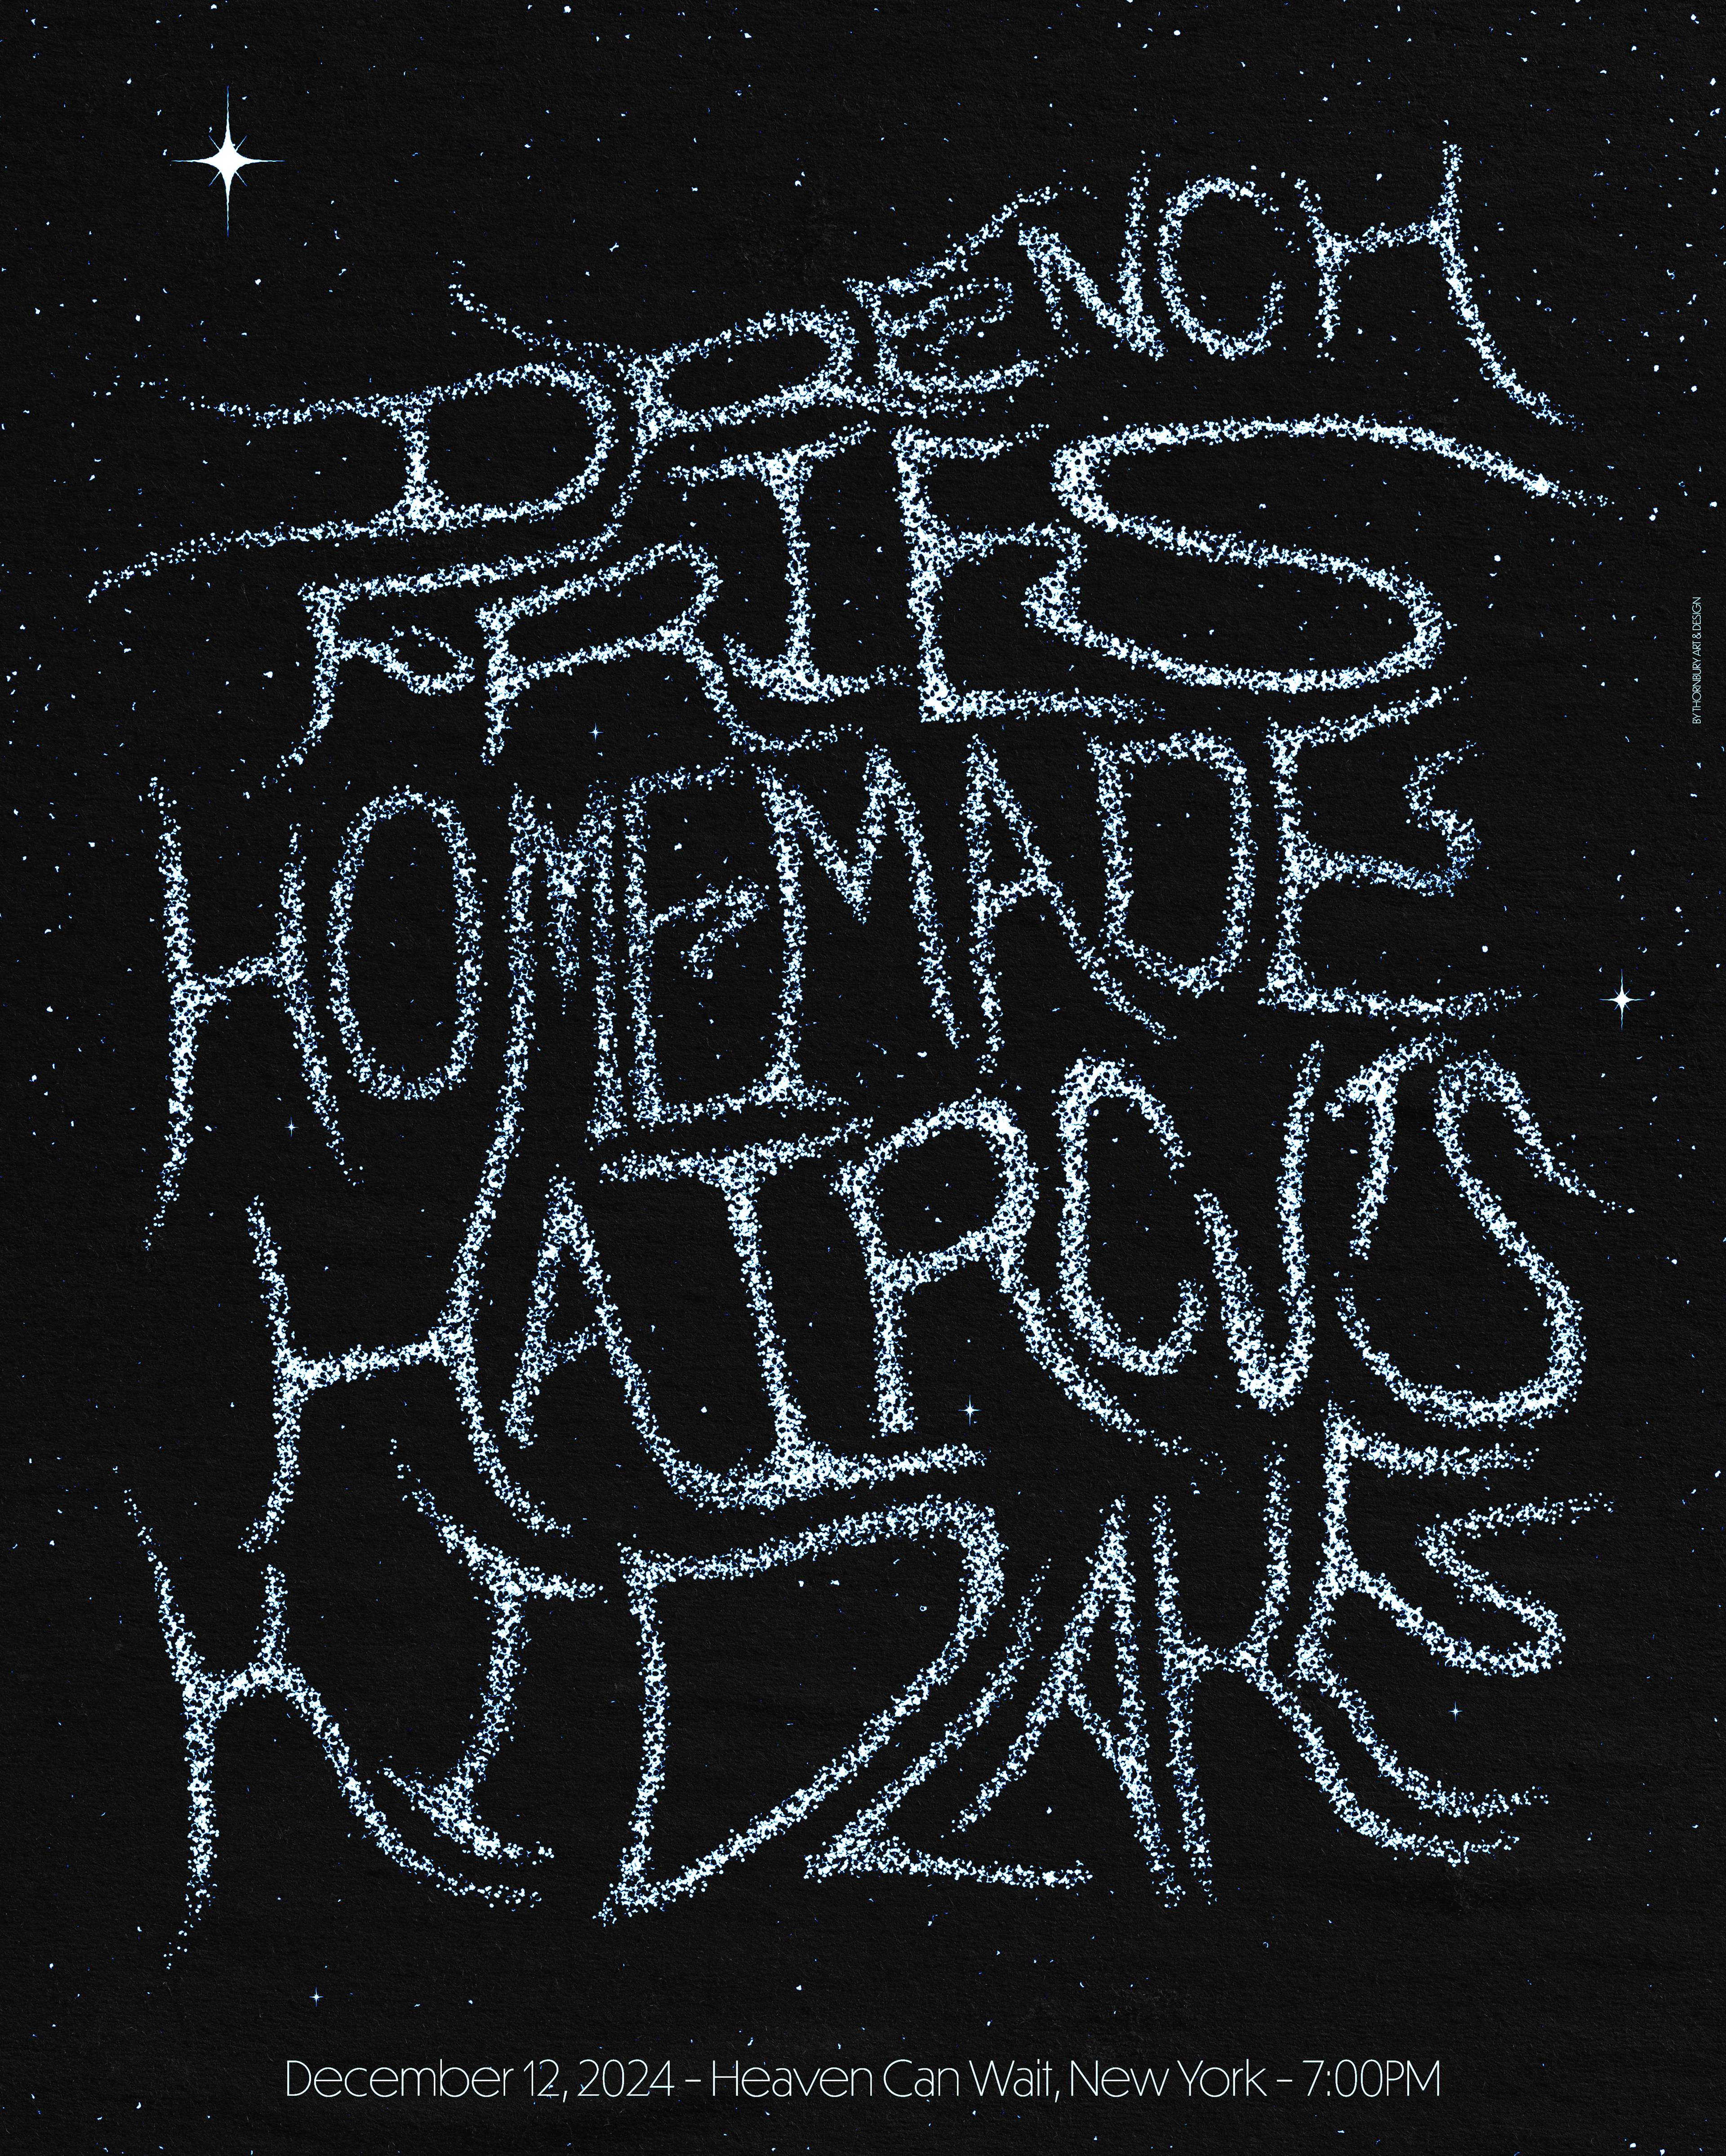 DRENCH
FRIES
HOMEMADE
HAIRCUTS
KIDZAKE
December 12, 2024 – Heaven Can Wait, New York – 7:00PM
BY THORNBURY ART & DESIGN